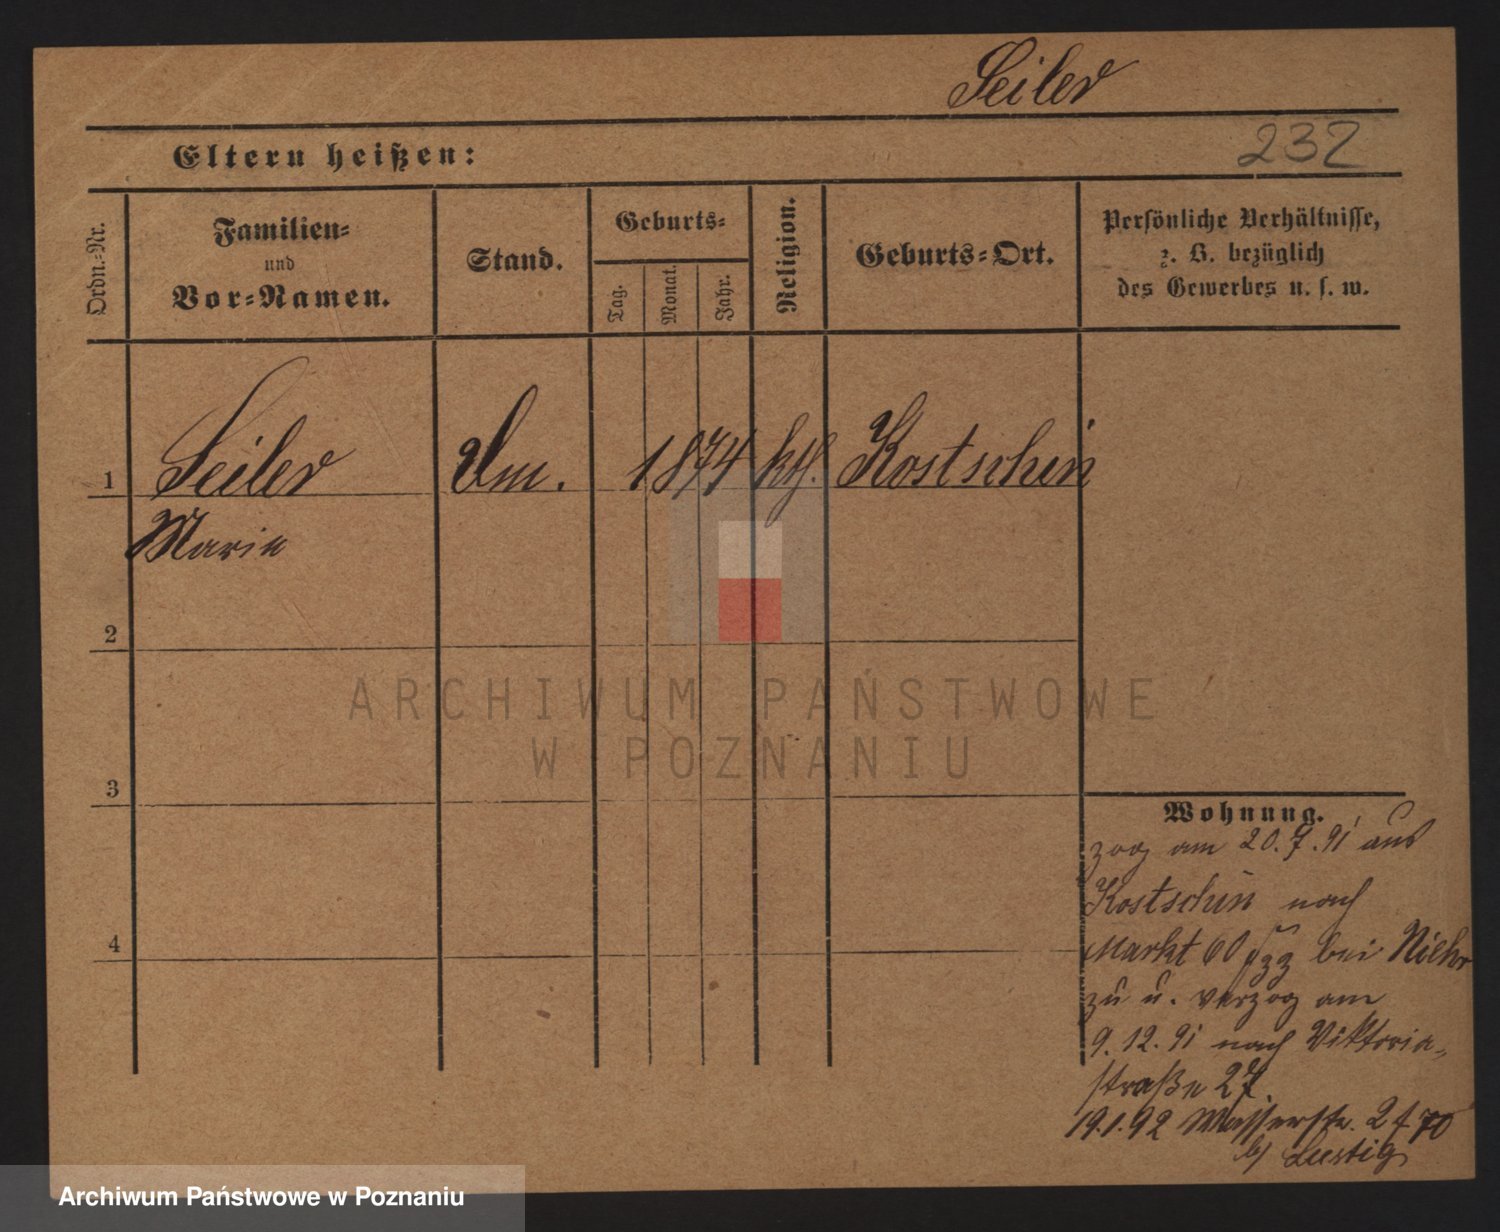 Seiler
Eltern heißen:
232
Ordn.-Nr.
Familien-
und
Vor-Namen.
Stand.
Geburts-
Tag.
Monat.
Jahr.
Religion.
Geburts-Ort.
Persönliche Verhältnisse,
z. B. bezüglich
des Gewerbes u. s. w.
1
Seiler
Marie
1874
kth.
Kostschin
2
3
4
ARCHIWUM PAŃSTWOWE
W POZNANIU
Wohnung.
zog am 20.7.91 aus
Kostschin nach
Markt 60 bei
zu u. verzog am
9.12.91 nach Viktoria-
straße 27.
19.1.92 Wasserstr. 2
b/ Lustig
Archiwum Państwowe w Poznaniu